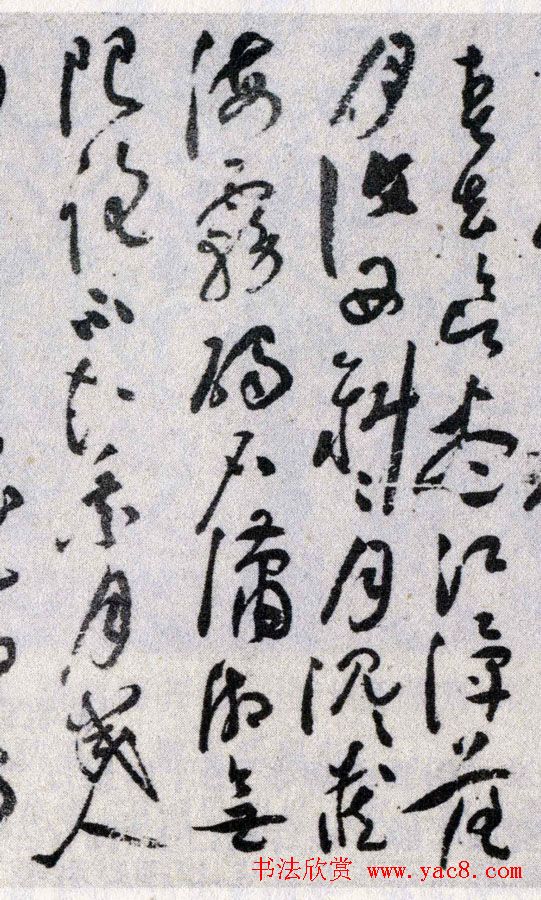 春去欲盡江潭落
月復西斜〻月沉〻藏
海霧碣石瀟湘無
限路不知乘月幾人
书法欣赏 www.yac8.com